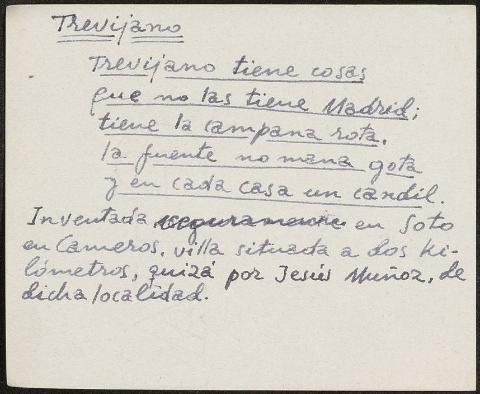 Trevijano
Trevijano tiene cosas
que no las tiene Madrid;
tiene la campana rota.
la fuente no mana gota
y en cada casa un candil.
Inventada seguramente en Soto
en Cameros, villa situada a dos ki-
lómetros, quizá por Jesús Muñoz, de
dicha localidad.